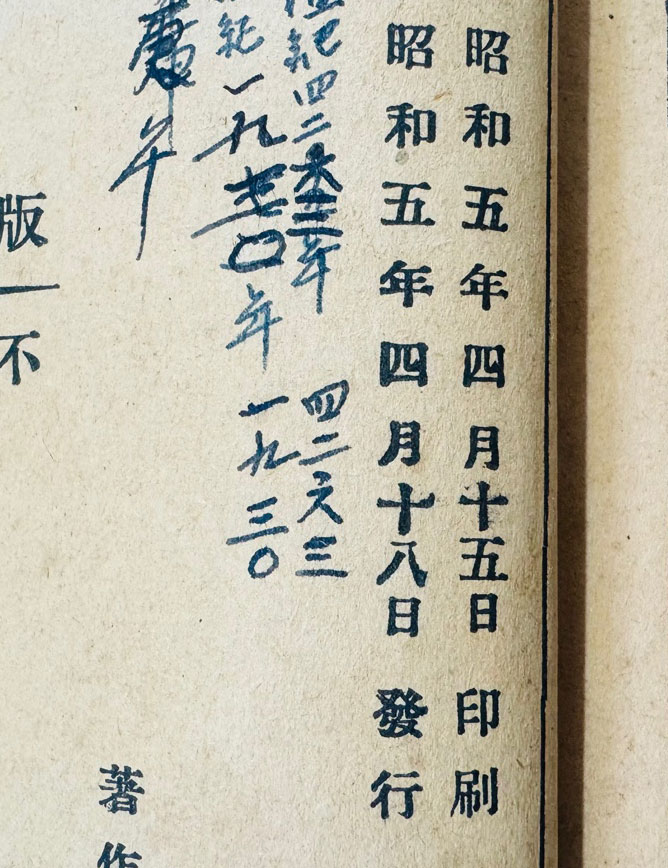 昭和五年四月十五日印刷
昭和五年四月十八日發行
紀四二三年
四二六三
紀一九〇年
一九三〇
午
版
不
著作